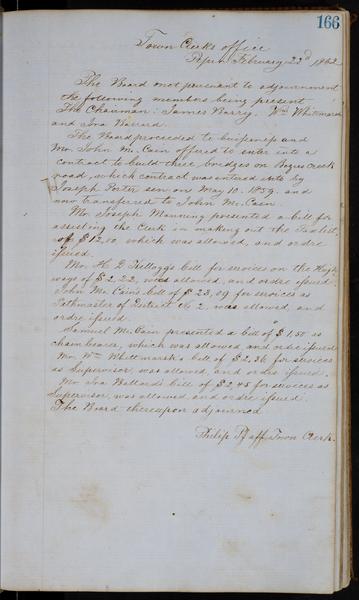 166
Town Clerks office
Pepin February 22d 1862
The Board met pursuant to adjournment
the following members being present
The Chairman: James Barry, Wm Whitmarsh
and Ira Ballard.
The Board proceeded to buisiness and
Mr. John McCain offered to enter into a
contract to build three bridges on Bogus Creek
road, which contract was entered into by
Joseph Porter sen on May 10. 1859. and
now transferred to John McCain.
Mr. Joseph Manning presented a bill for
assisting the Clerk in making out the Taxlist,
of $12,10, which was allowed, and ordre
issued.
Mr. H. D Kellogg's bill for services on the High
ways of $2.22, was allowed, and ordre issued.
John McCain's bill of $23,89 for services as
Pathmaster of District No 2. was allowed, and
ordre issued.
Samuel McCain presented a bill of $1,50 as
chain bearer, which was allowed and ordre issued
Mr. Wm Whitmarsh's bill of $2,36 for services
as Supervisor, was allowed, and ordre issued.
Mr. Ira Ballard's bill of $2,45 for services as
Supervisor, was allowed, and ordre issued.
The Board thereupon adjourned
Philip Pfaff Town Clerk.